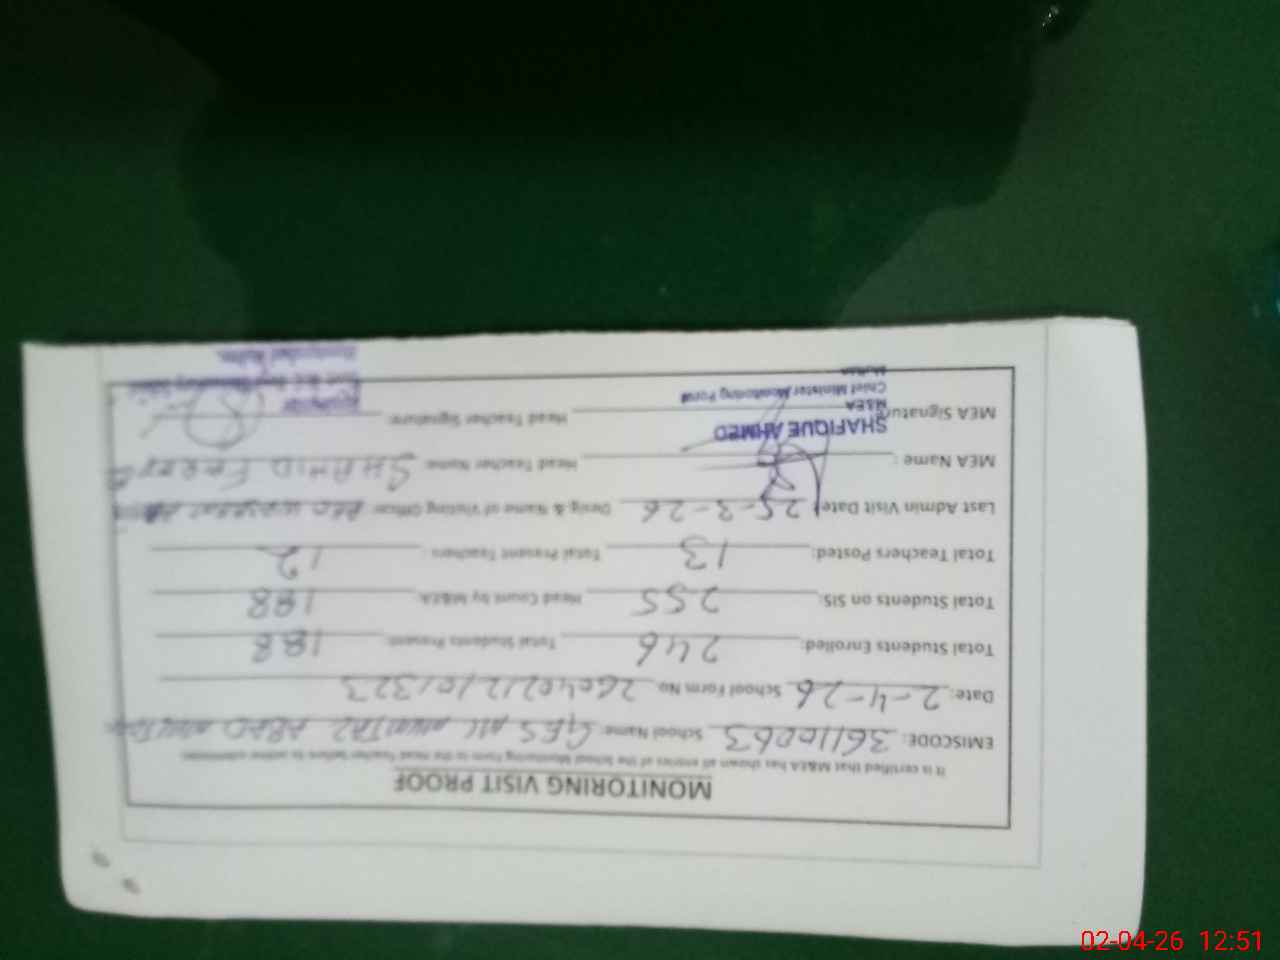 MONITORING VISIT PROOF
It is certified that M&EA has shown all entries of the School Monitoring Form to the Head Teacher before its online submission
EMISCODE: 36110063 School Name: GES MUMTAZ ABAD
Date: 2-4-26 School Form No. 26040212101323
Total Students Enrolled: 246 Total Students Present: 188
Total Students on SIS: 255 Head Count by M&EA: 188
Total Teachers Posted: 13 Total Present Teachers: 12
Last Admin Visit Date: 25-3-26 Desig. & Name of Visiting Officer:
MEA Name: Head Teacher Name: SHAHID
SHAFIQUE AHMED
MEA Signature: Head Teacher Signature:
M&EA
Chief Minister Monitoring Force
Multan
02-04-26 12:51